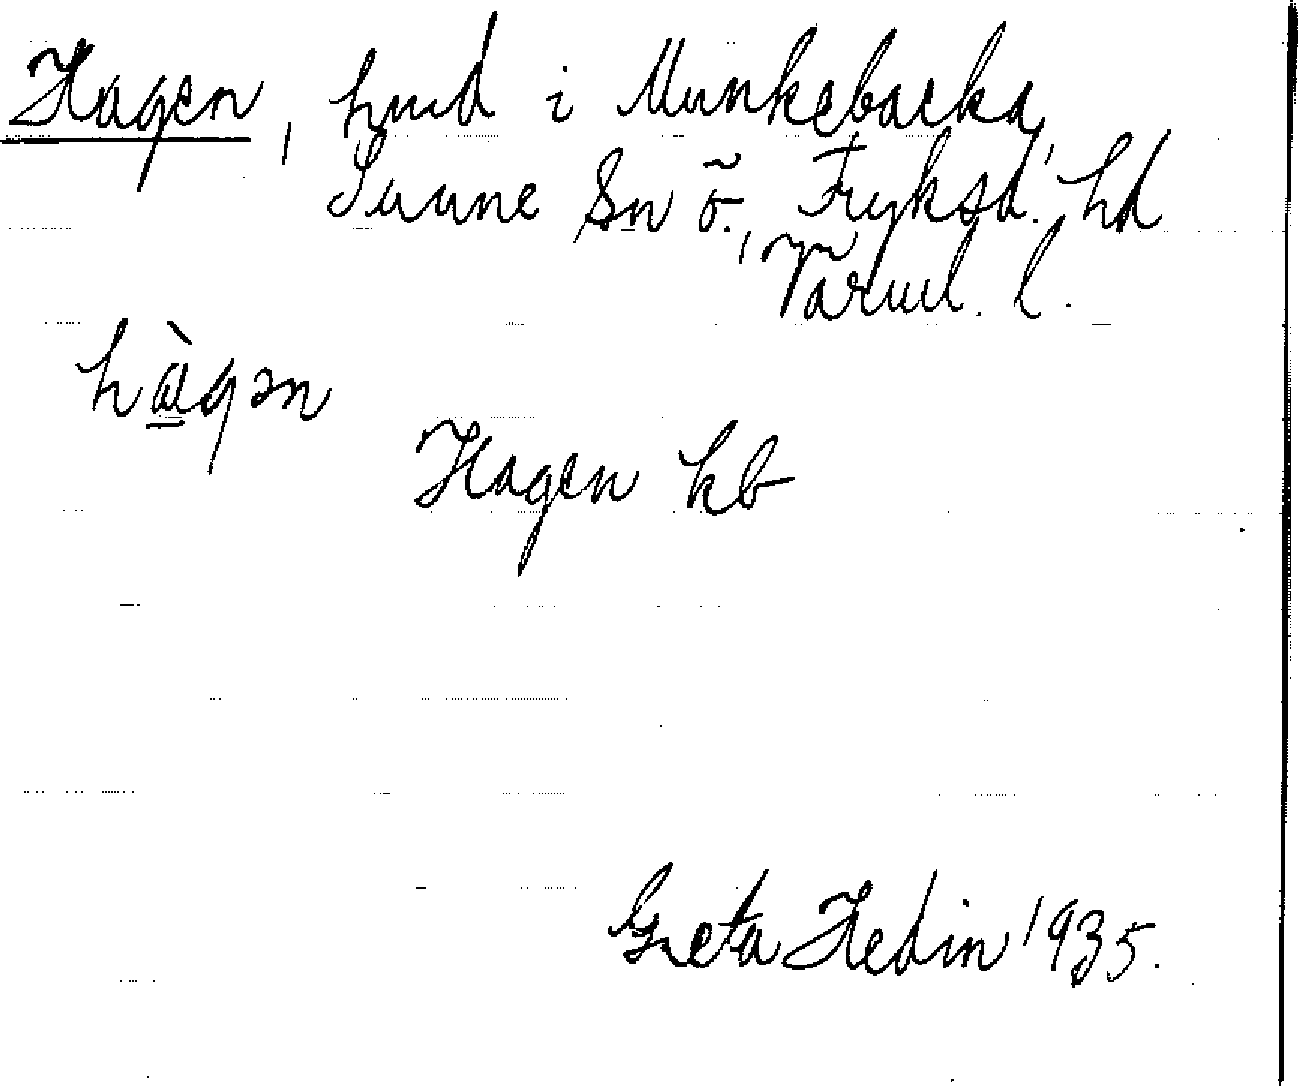 Hagen, hmd i Munkebacka,
Sunne Sn ö., Fryksd. hd,
Värml. l.
hàgən
Hagen kb
Greta Hedin 1935.